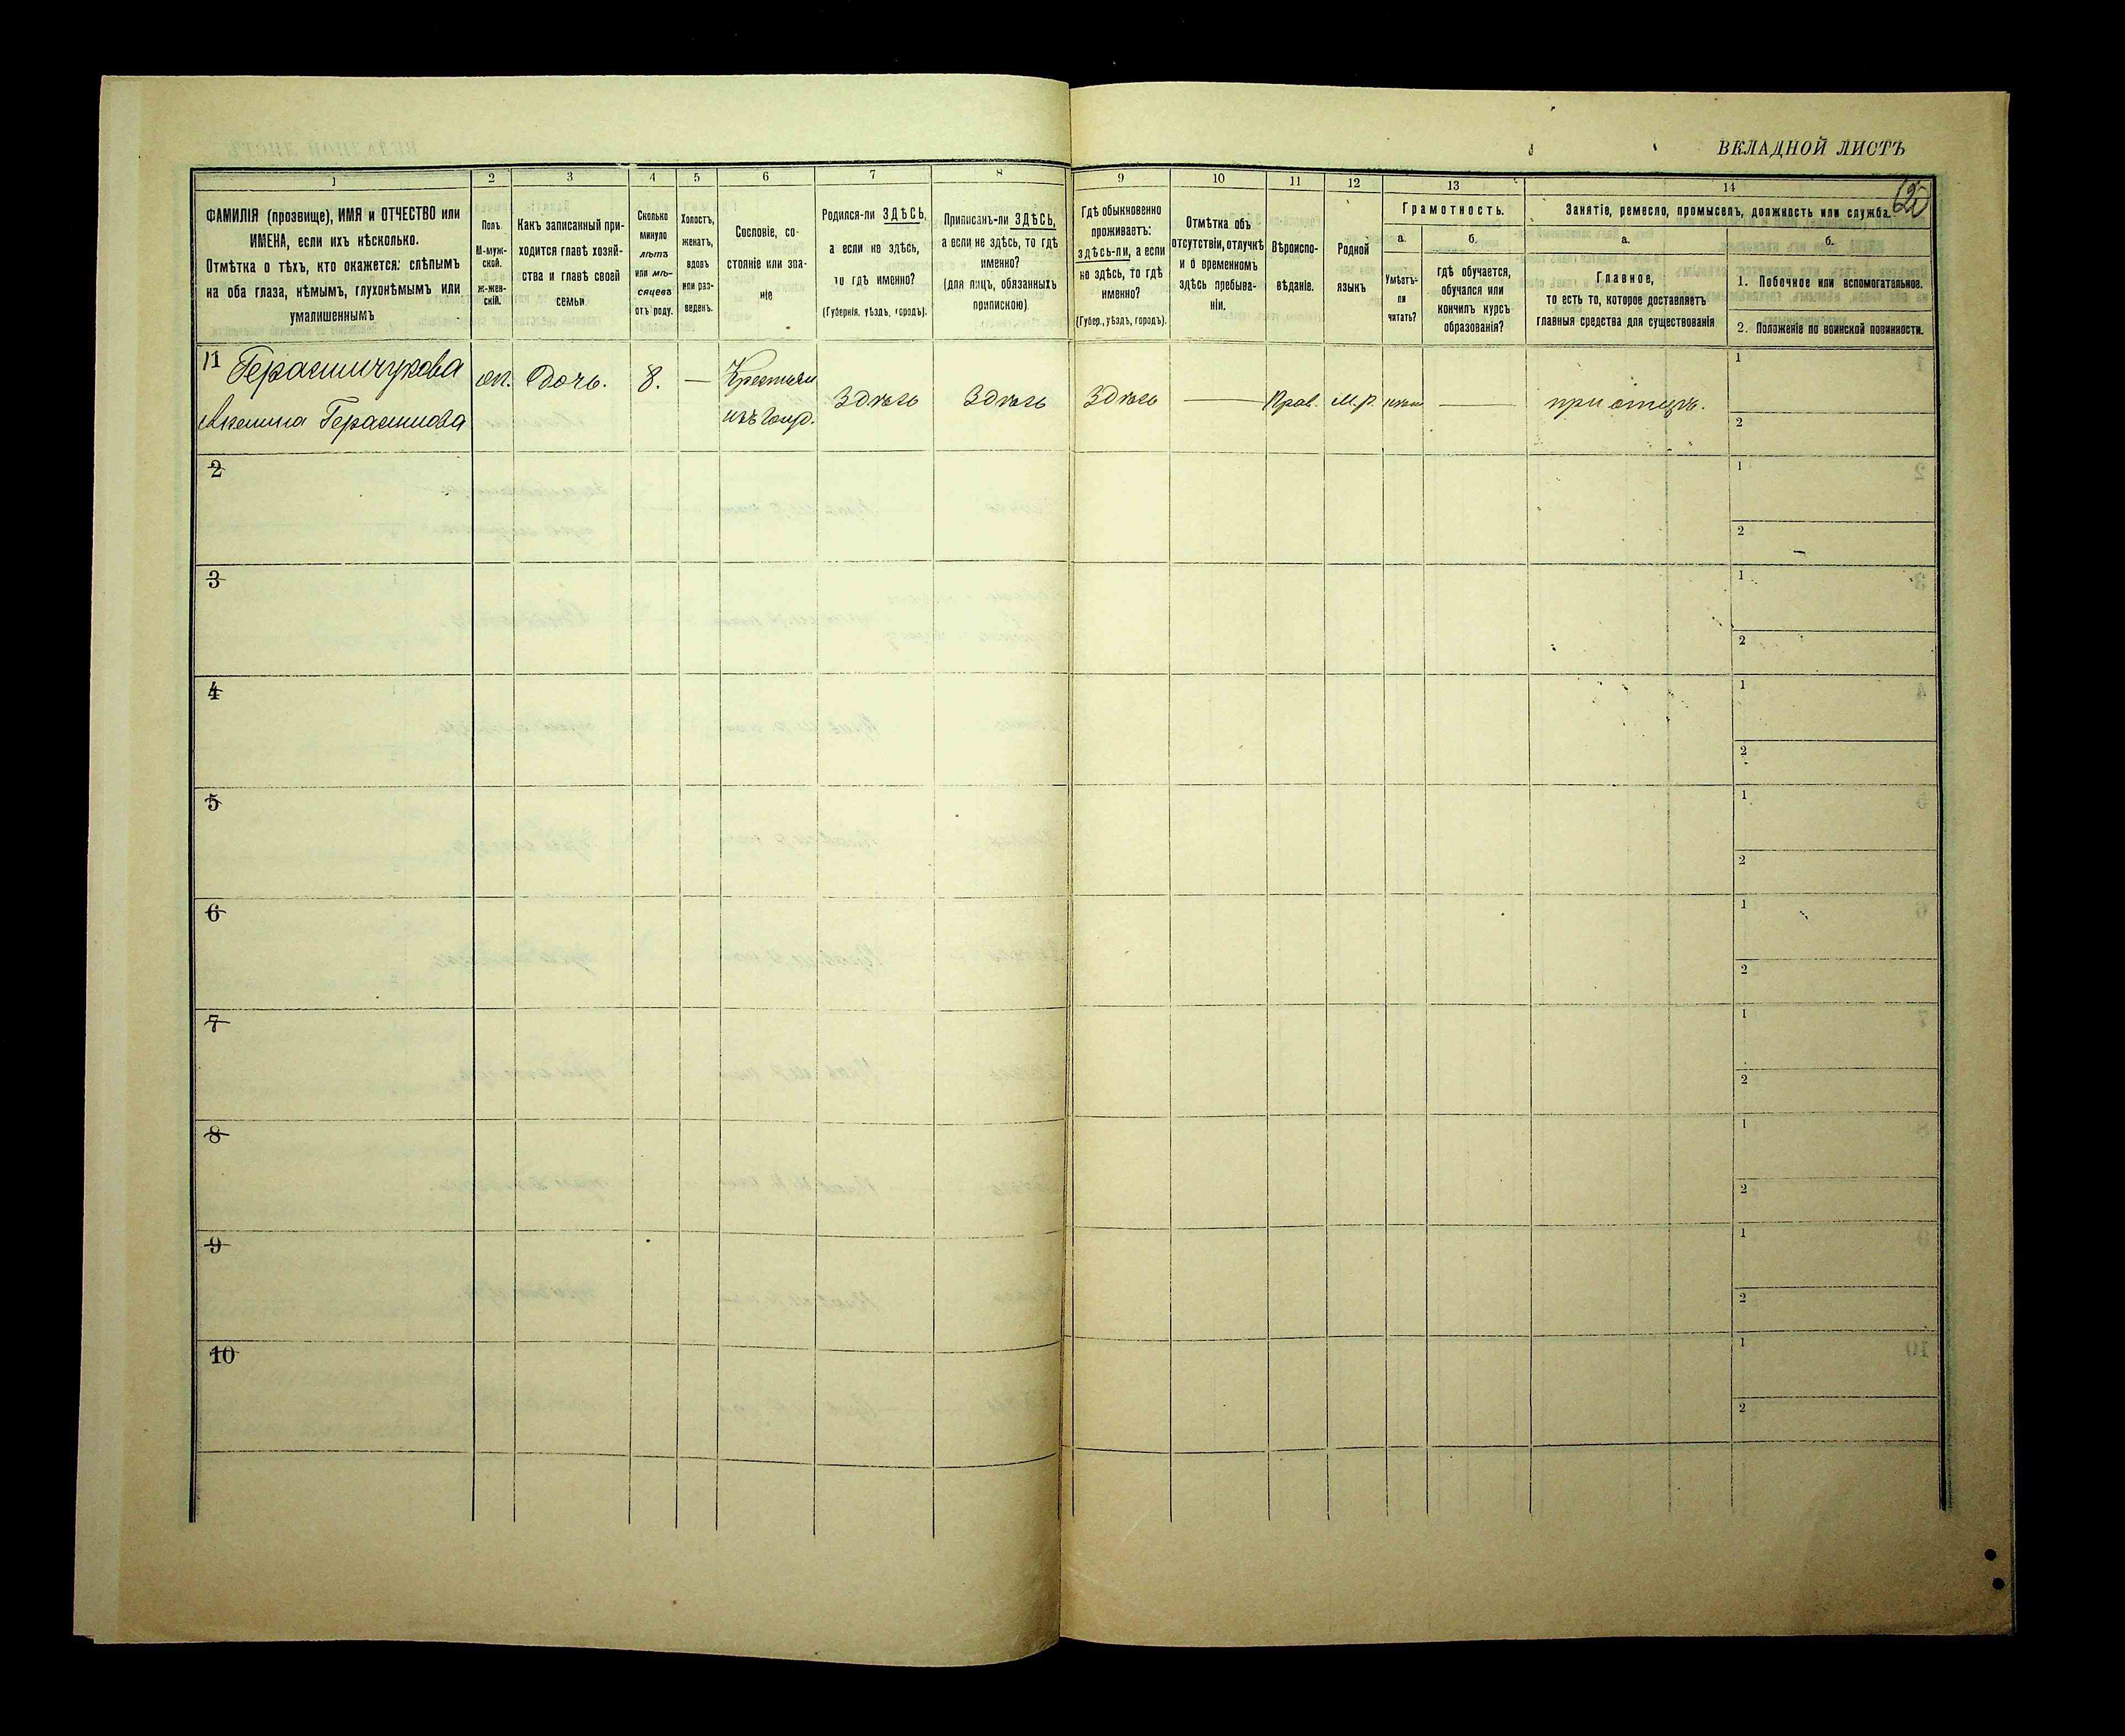 ВКЛАДНОЙ ЛИСТЪ
1
2
3
4
5
6
7
8
9
10
11
12
13
14
ФАМИЛІЯ (прозвище), ИМЯ и ОТЧЕСТВО или
ИМЕНА, если ихъ нѣсколько.
Отмѣтка о тѣхъ, кто окажется: слѣпымъ
на оба глаза, нѣмымъ, глухонѣмымъ или
умалишеннымъ
Полъ.
М-муж-
ской.
Ж-жен-
скій.
Какъ записанный при-
ходится главѣ хозяй-
ства и главѣ своей
семьи
Сколько
минуло
лѣтъ
или мѣ-
сяцевъ
отъ роду.
Холостъ,
женатъ,
вдовъ
или раз-
веденъ.
Сословіе, со-
стояніе или зва-
ніе
Родился-ли ЗДѢСЬ,
а если не здѣсь,
то гдѣ именно?
(Губернія, уѣздъ, городъ).
Приписанъ-ли ЗДѢСЬ,
а если не здѣсь, то гдѣ
именно?
(для лицъ, обязанныхъ
припискою)
Гдѣ обыкновенно
проживаетъ:
здѣсь-ли, а если
не здѣсь, то гдѣ
именно?
(Губер., уѣздъ, городъ).
Отмѣтка объ
отсутствіи, отлучкѣ
и о временномъ
здѣсь пребыва-
ніи.
Вѣроиспо-
вѣданіе.
Родной
языкъ
Грамотность.
а.
Умѣетъ-
ли
читать?
б.
гдѣ обучается,
обучался или
кончилъ курсъ
образованія?
Занятіе, ремесло, промыселъ, должность или служба.
а.
Главное,
то есть то, которое доставляетъ
главныя средства для существованія
б.
1. Побочное или вспомогательное.
2. Положеніе по воинской повинности.
11 Герасимчукова
Акелина Герасимова
Дочь.
8.
—
Крестьян
изъ госуд.
Здѣсь
Здѣсь
Здѣсь
—
Прав.
М.р.
—
при отцѣ.
1
2
2
1
2
3
1
2
4
1
2
5
1
2
6
1
2
7
1
2
8
1
2
9
1
2
10
1
2